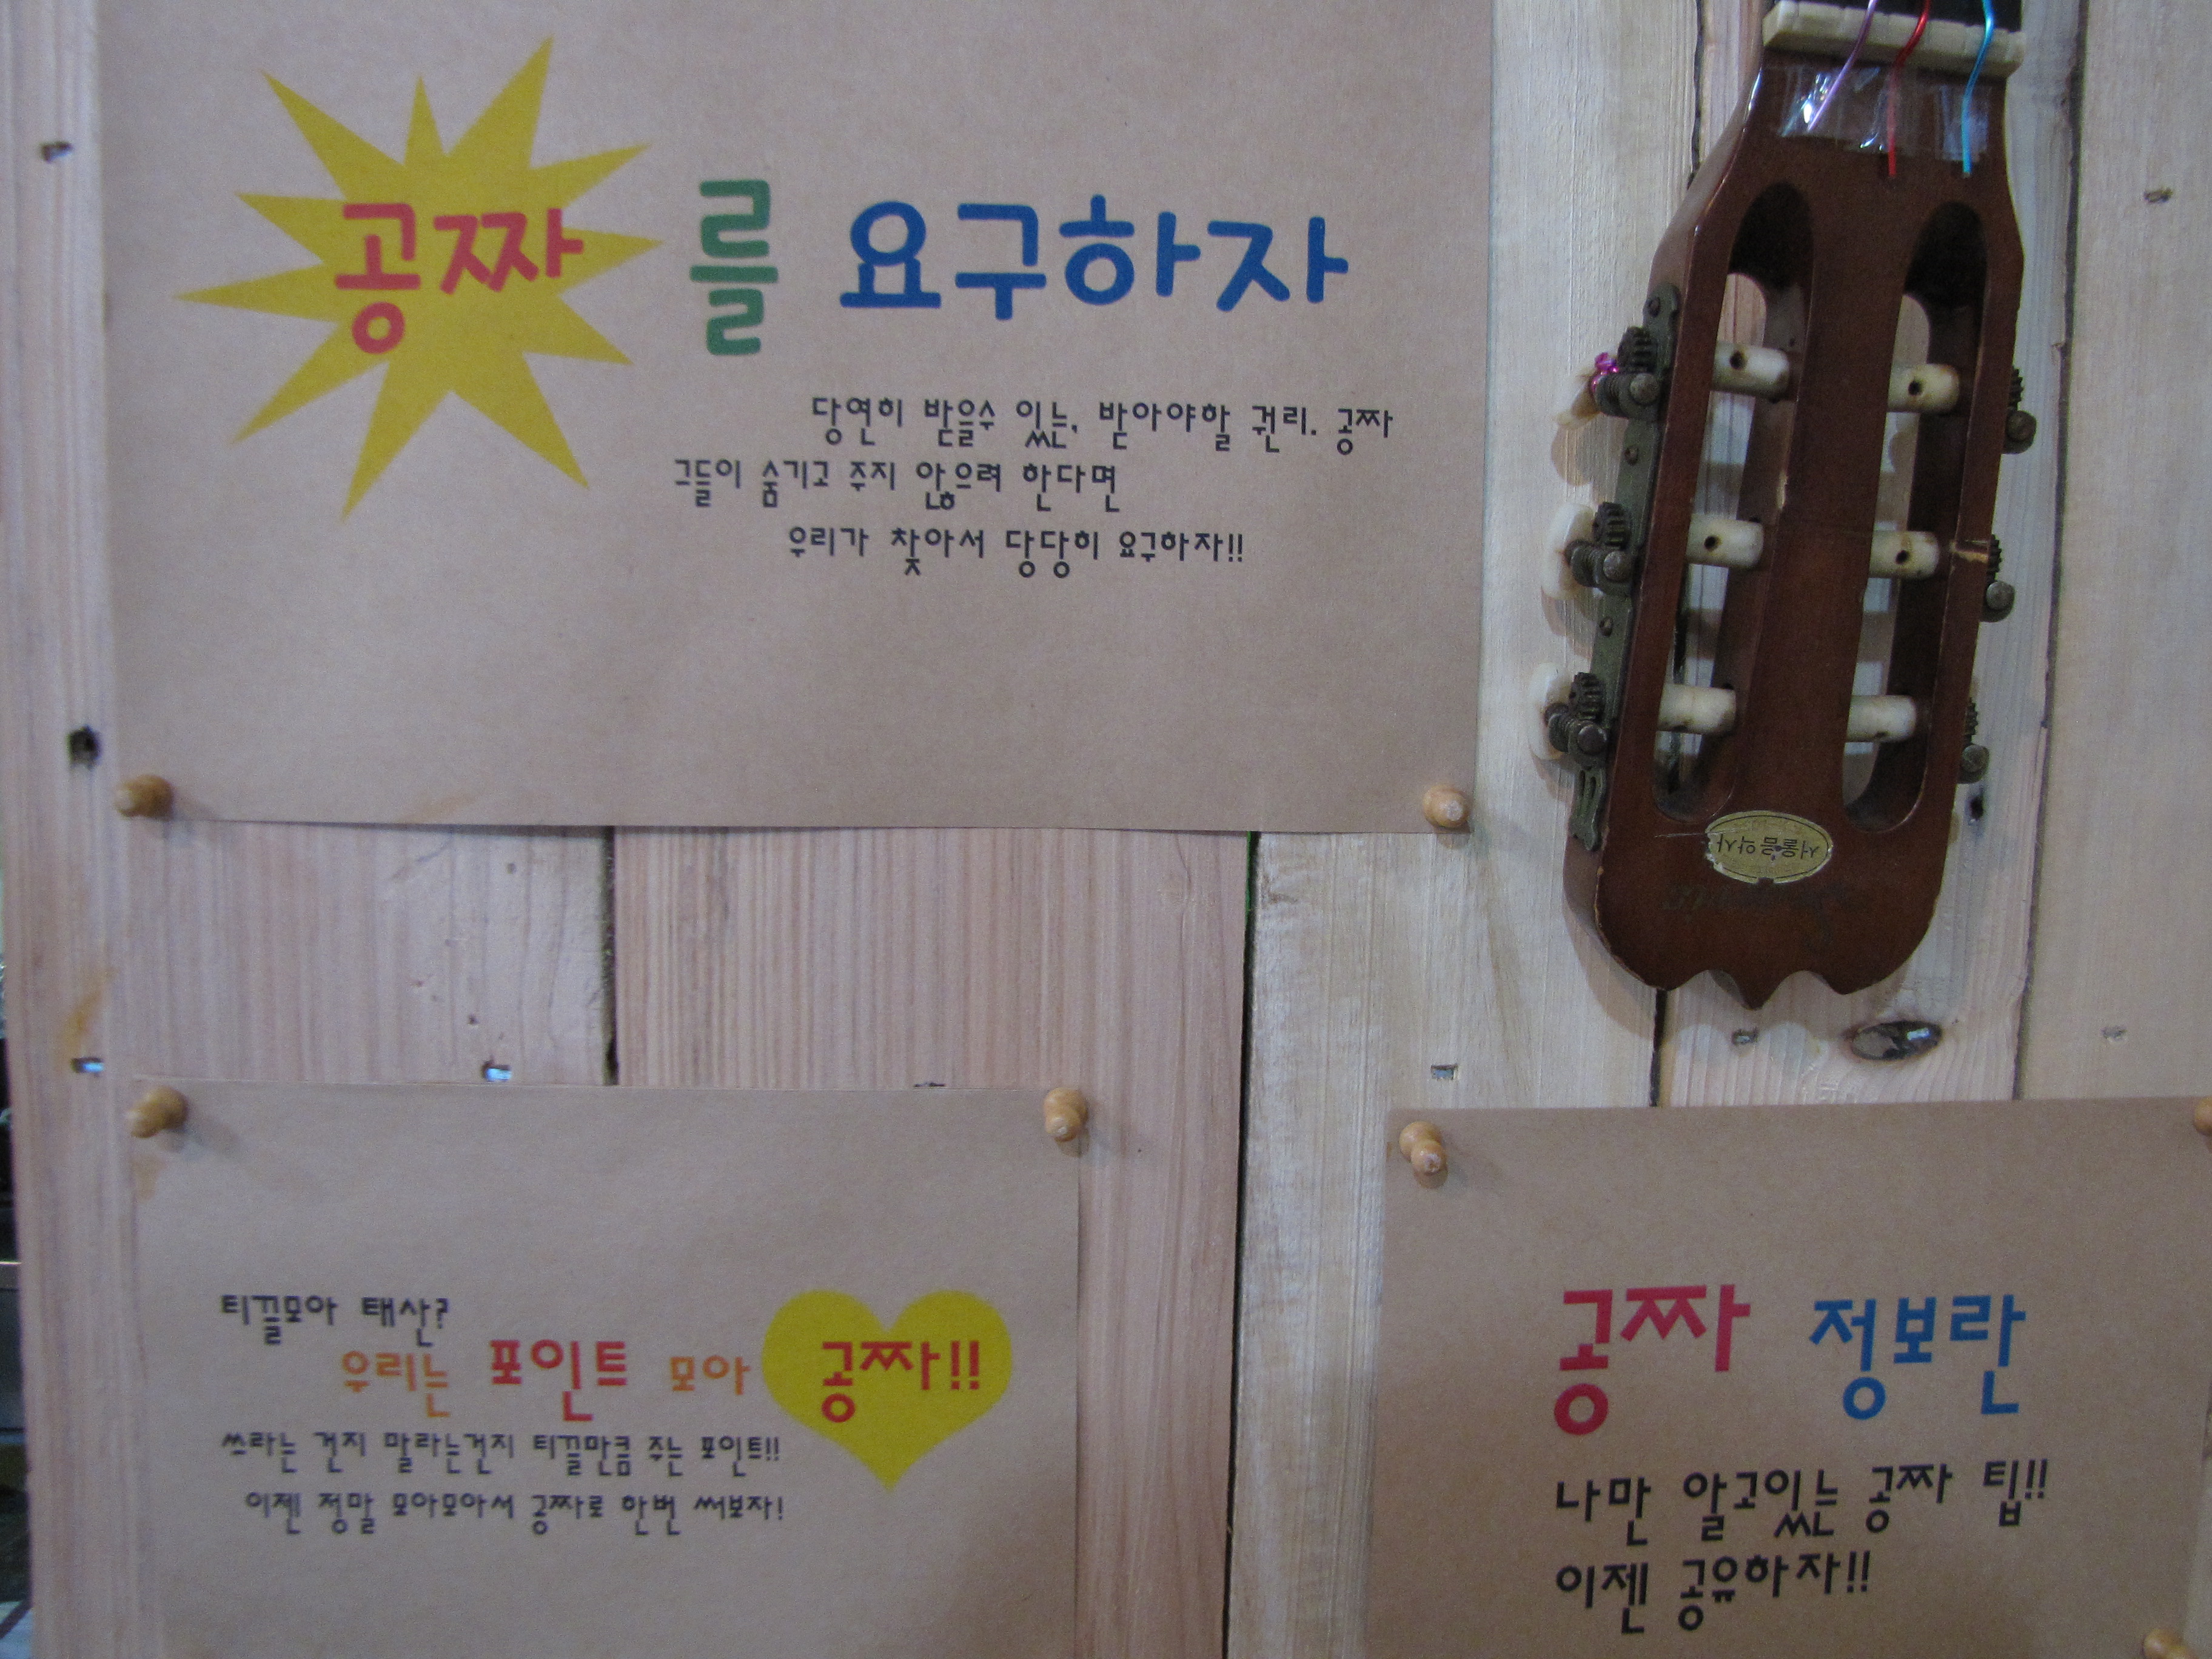 공짜를 요구하자
당연히 받을수 있는, 받아야할 권리. 공짜
그들이 숨기고 주지 않으려 한다면
우리가 찾아서 당당히 요구하자!!
티끌모아 태산?
우리는 포인트 모아 공짜!!
쓰라는 건지 말라는건지 티끌만큼 주는 포인트!!
이젠 정말 모아모아서 공짜로 한번 써보자!
공짜 정보란
나만 알고있는 공짜 팁!!
이젠 공유하자!!